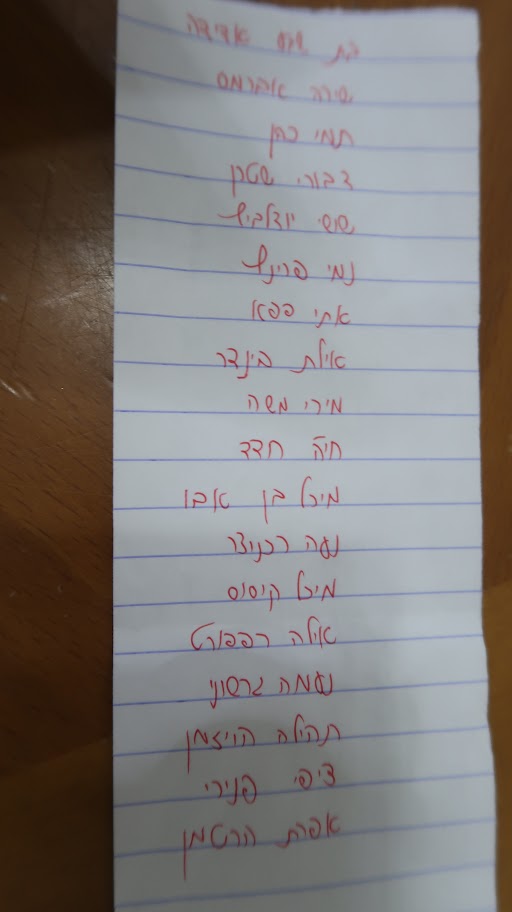 בת שבע אדידה
שירה אברמס
תמי כהן
דבורי שטרן
שושי יודלביץ
נמי פרינץ
אתי פפא
אילת בינדר
מירי משה
חיה חדד
מיכל בן אבו
נעה רכניצר
מיכל קיסוס
אילה רפפורט
נעמה גרשוני
תהילה הויזמן
ציפי פנירי
אפרת הרטמן